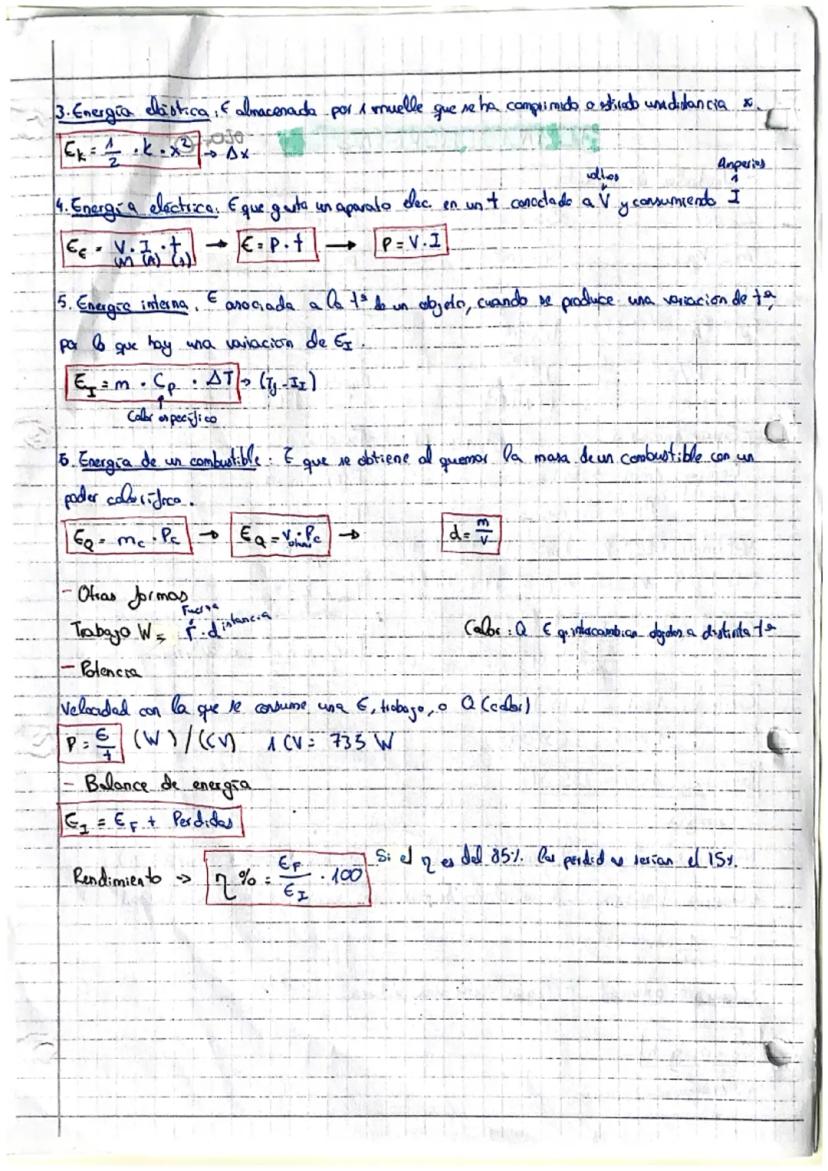 3. Energía elástica: E almacenada por 1 muelle que se ha comprimido o estirado una distancia x.
Ek = 1/2 · k · x² → Δx
voltios Amperios
4. Energía eléctrica: E que gasta un aparato elec. en un t conectado a V y consumiendo I
EE = V · I · t → E = P · t → P = V · I
(V) (A) (s)
5. Energía interna: E asociada a la tª de un objeto, cuando se produce una variación de tª,
por lo que hay una variación de EI.
EI = m · Cp · ΔT →
Calor específico
6. Energía de un combustible: E que se obtiene al quemar la masa de un combustible con un
poder calorífico.
EQ = mc · Pc → EQ = V · Pc → d = m/V
- Otras formas
Fuerza
Trabajo W = F · distancia Calor: Q E q intercambian objetos a distinta tª
- Potencia
Velocidad con la que se consume una E, trabajo, o Q (calor)
P = E/t (W) / (CV) 1 CV = 735 W
- Balance de energía
EI = EF + Perdidas
Rendimiento → η % = EF/EI · 100 Si el η es del 85% las perdidas serían el 15%.